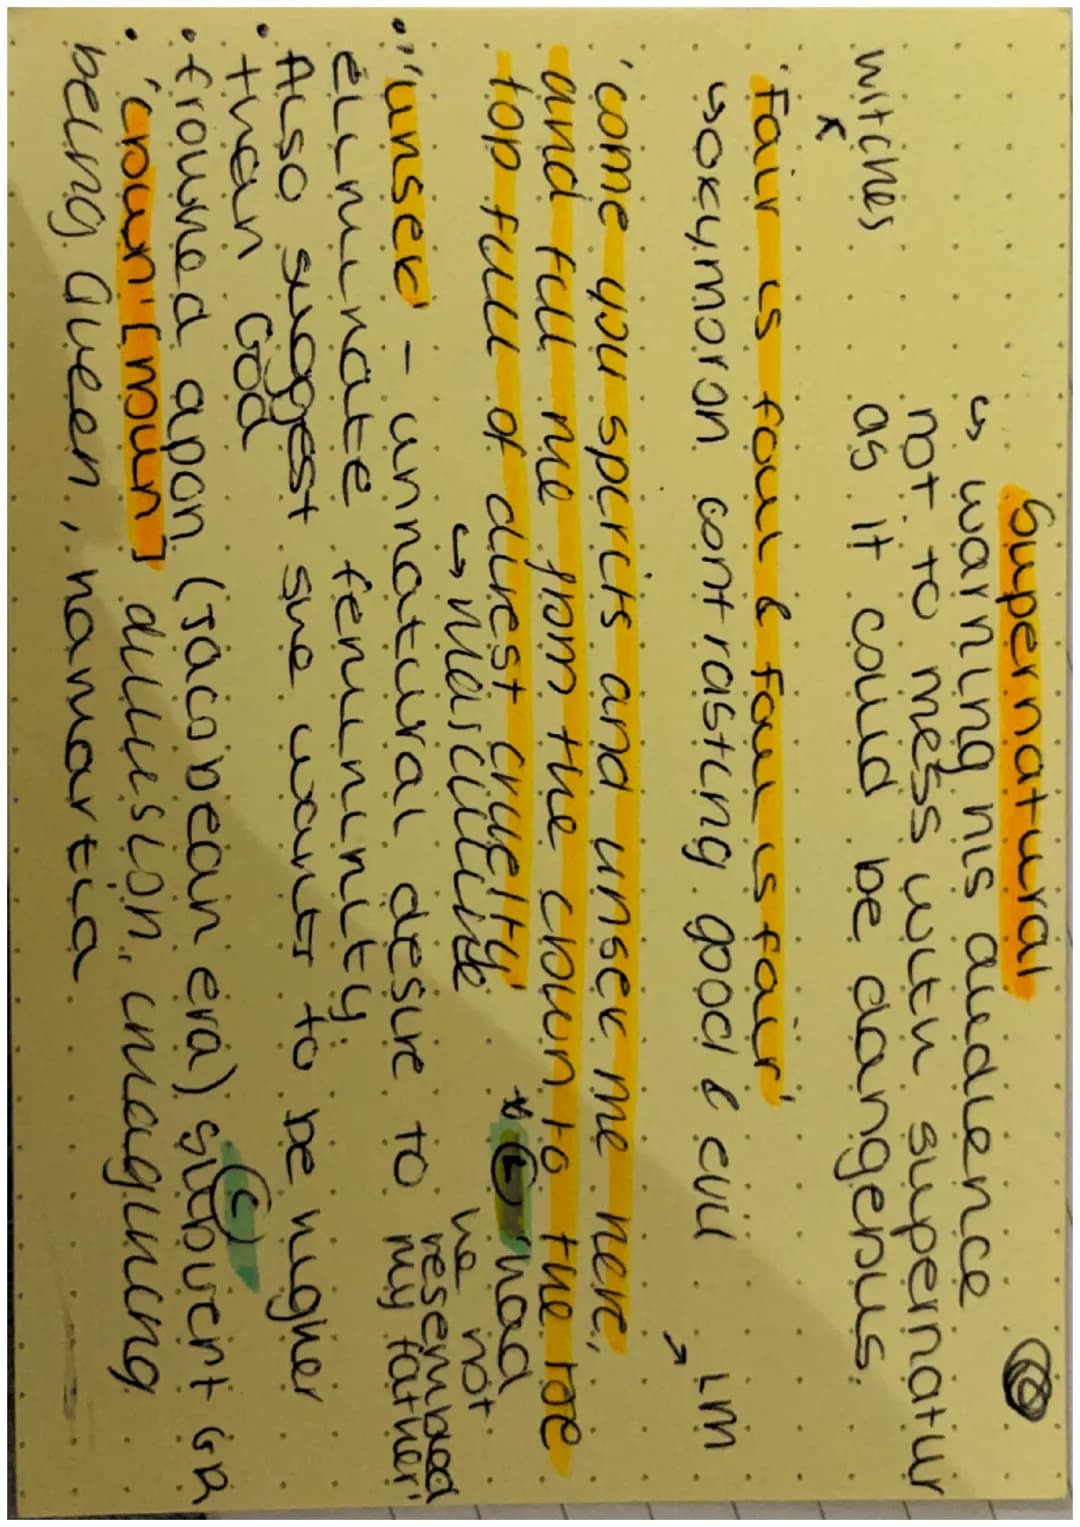 Supernatural
↳ warning his audience
not to mess with supernatur
witches as it could be dangerous.
x
'Fair is foul & foul is fair'
↳ oxymoron contrasting good & evil
→ im
'come you spirits and unsex me here,
and fill me from the crown to the toe
top full of direst cruelty'
↳ masculine
* (L) 'had
he not
resembled
my father'
• 'unsex' - unnatural desire to
eliminate femininity.
Also suggest she wants to be higher
• than God
(C)
• frowned apon (Jacobean era) subvert GR
• 'crown' [noun] dillusion, imagining
being Queen, hamartia